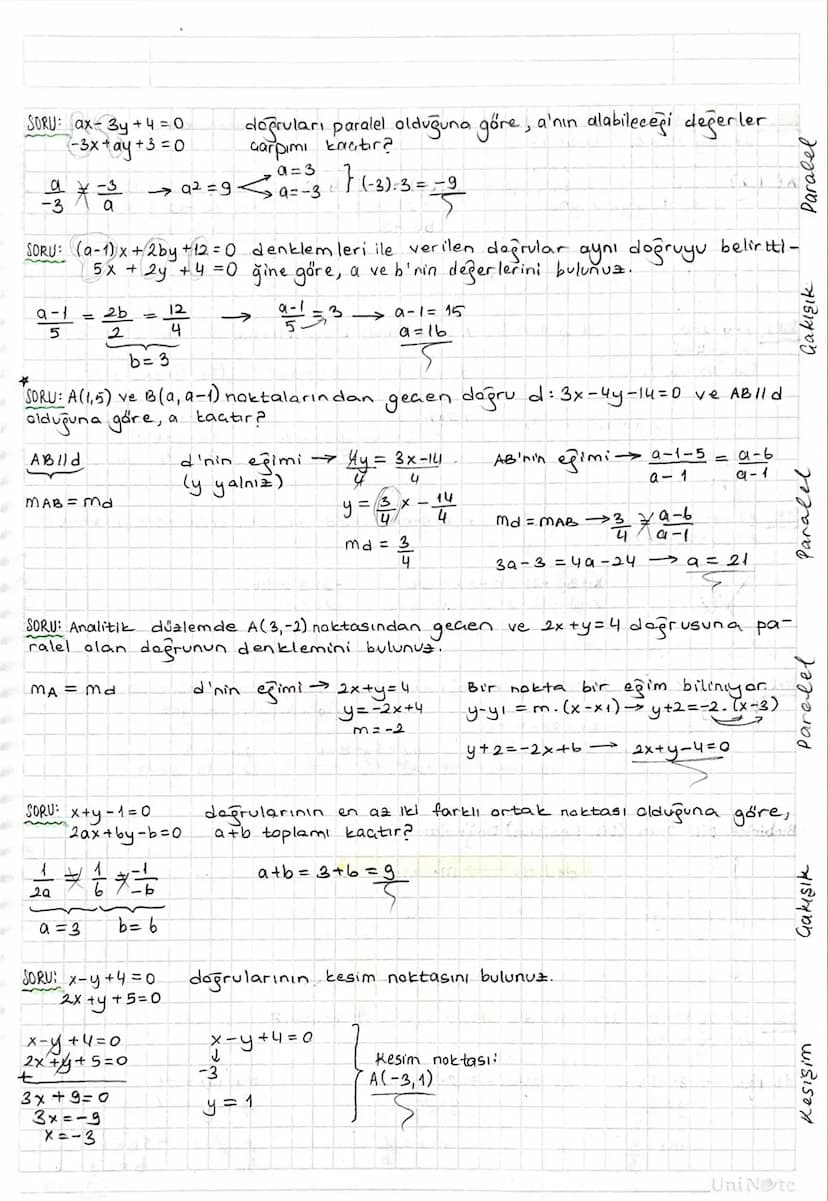 SORU: ax-3y+4=0 doğruları paralel olduğuna göre, a'nın alabileceği değerler
-3x+ay+3=0 çarpımı kaçtır?
a/-3 = -3/a → a²=9 a=3 a=-3 } (-3).3=-9
Paralel
SORU: (a-1)x+2by+12=0 denklemleri ile verilen doğrular aynı doğruyu belirtti-
5x+2y+4=0 ğine göre, a ve b'nin değerlerini bulunuz.
a-1/5 = 2b/2 = 12/4 → a-1/5=3 → a-1=15
b=3 a=16
Çakışık
* SORU: A(1,5) ve B(a,a-1) noktalarından geçen doğru d: 3x-4y-14=0 ve AB//d
olduğuna göre, a kaçtır?
AB//d d'nin eğimi → 4y/4 = 3x-14/4 AB'nin eğimi → a-1-5/a-1 = a-6/a-1
(y yalnız)
mAB=md y=3/4 x - 14/4 md=mAB → 3/4 = a-6/a-1
md=3/4 3a-3=4a-24 → a=21
Paralel
SORU: Analitik düzlemde A(3,-2) noktasından geçen ve 2x+y=4 doğrusuna pa-
ralel olan doğrunun denklemini bulunuz.
mA=md d'nin eğimi → 2x+y=4 Bir nokta bir eğim biliniyor.
y=-2x+4 y-y1=m.(x-x1) → y+2=-2.(x-3)
m=-2
y+2=-2x+6 → 2x+y-4=0
Paralel
SORU: x+y-1=0 doğrularının en az iki farklı ortak noktası olduğuna göre,
2ax+6y-b=0 a+b toplamı kaçtır?
1/2a = 1/6 = -1/-b a+b=3+6=9
a=3 b=6
Çakışık
SORU: x-y+4=0 doğrularının kesim noktasını bulunuz.
2x+y+5=0
x-y+4=0 x-y+4=0
2x+y+5=0 ↓ Kesim noktası:
+ -3 A(-3,1)
3x+9=0 y=1
3x=-9
x=-3
Kesişim
UniNote